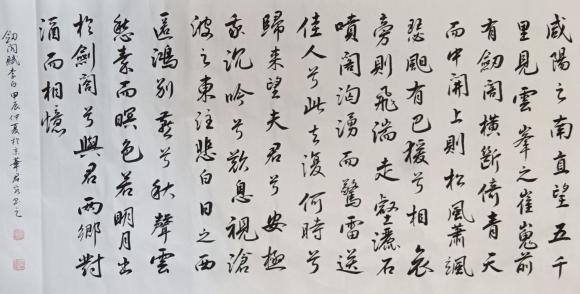 咸陽之南直望五千
里見雲峯之崔嵬前
有釼閣橫斷倚青天
而中開上則松風蕭颯
瑟颶有巴猨兮相哀
旁則飛湍走壑灑石
噴閣洶湧而驚雷送
佳人兮此去復何時兮
歸來望夫君兮安極
我沉吟兮歎息視滄
波之東注悲白日之西
匿鴻別燕兮秋聲雲
愁秦而暝色若明月出
於劍閣兮與君兩鄉對
酒而相憶
釼閣賦李白甲辰仲夏於京華